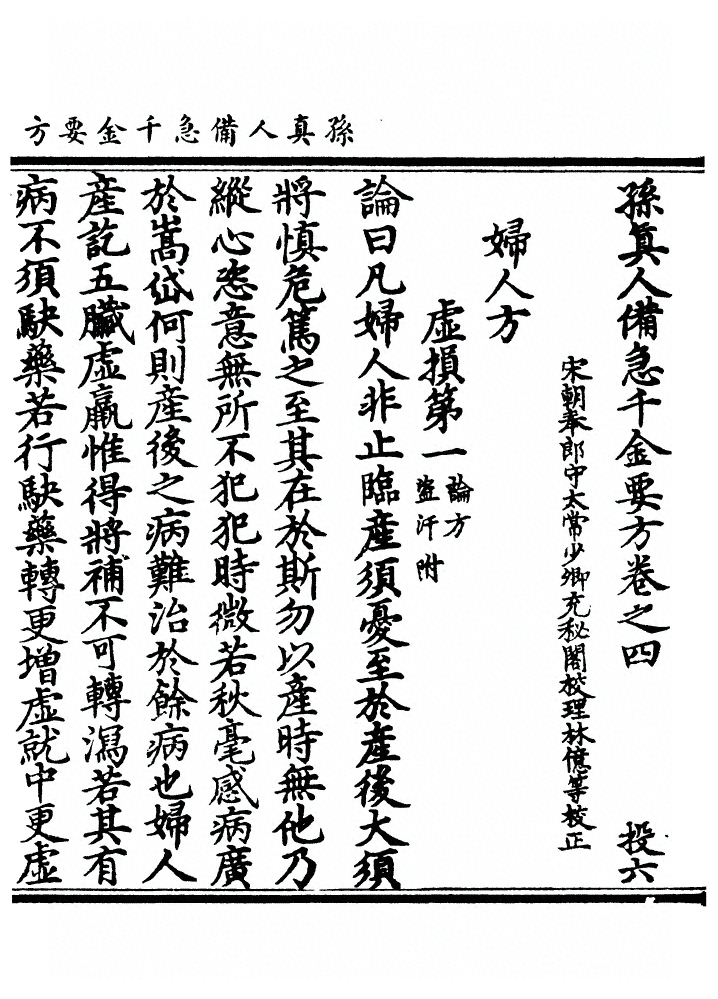 孫真人備急千金要方
孫眞人備急千金要方卷之四　投六
宋朝奉郎守太常少卿充秘閣校理林億等校正
婦人方
虛損第一 論方 盜汗附
論曰凡婦人非止臨產須憂至於產後大須
將慎危篤之至其在於斯勿以產時無他乃
縱心恣意無所不犯犯時微若秋毫感病廣
於嵩岱何則產後之病難治於餘病也婦人
產訖五臟虛羸惟得將補不可轉瀉若其有
病不須駃藥若行駃藥轉更增虛就中更虛